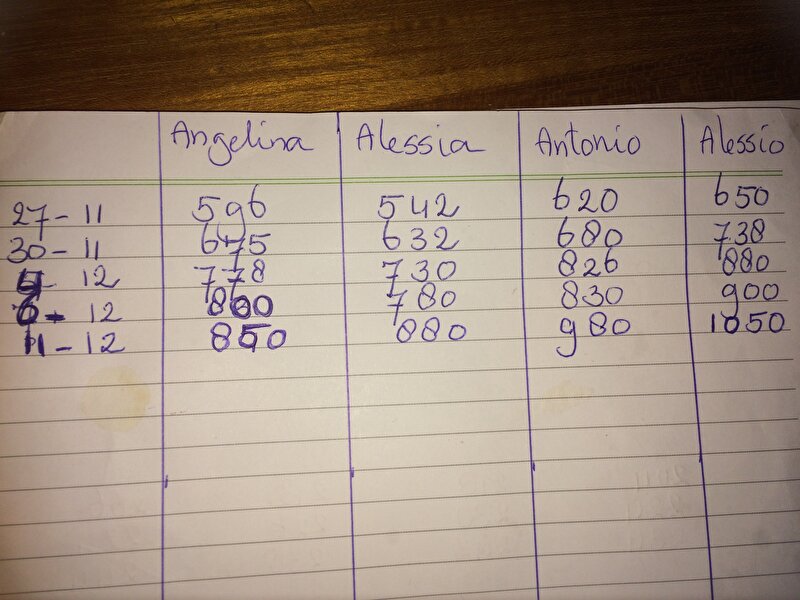 Angelina Alessia Antonio Alessio
27-11 596 542 620 650
30-11 675 632 680 738
4-12 778 730 826 880
6-12 800 780 830 900
11-12 850 880 980 1050